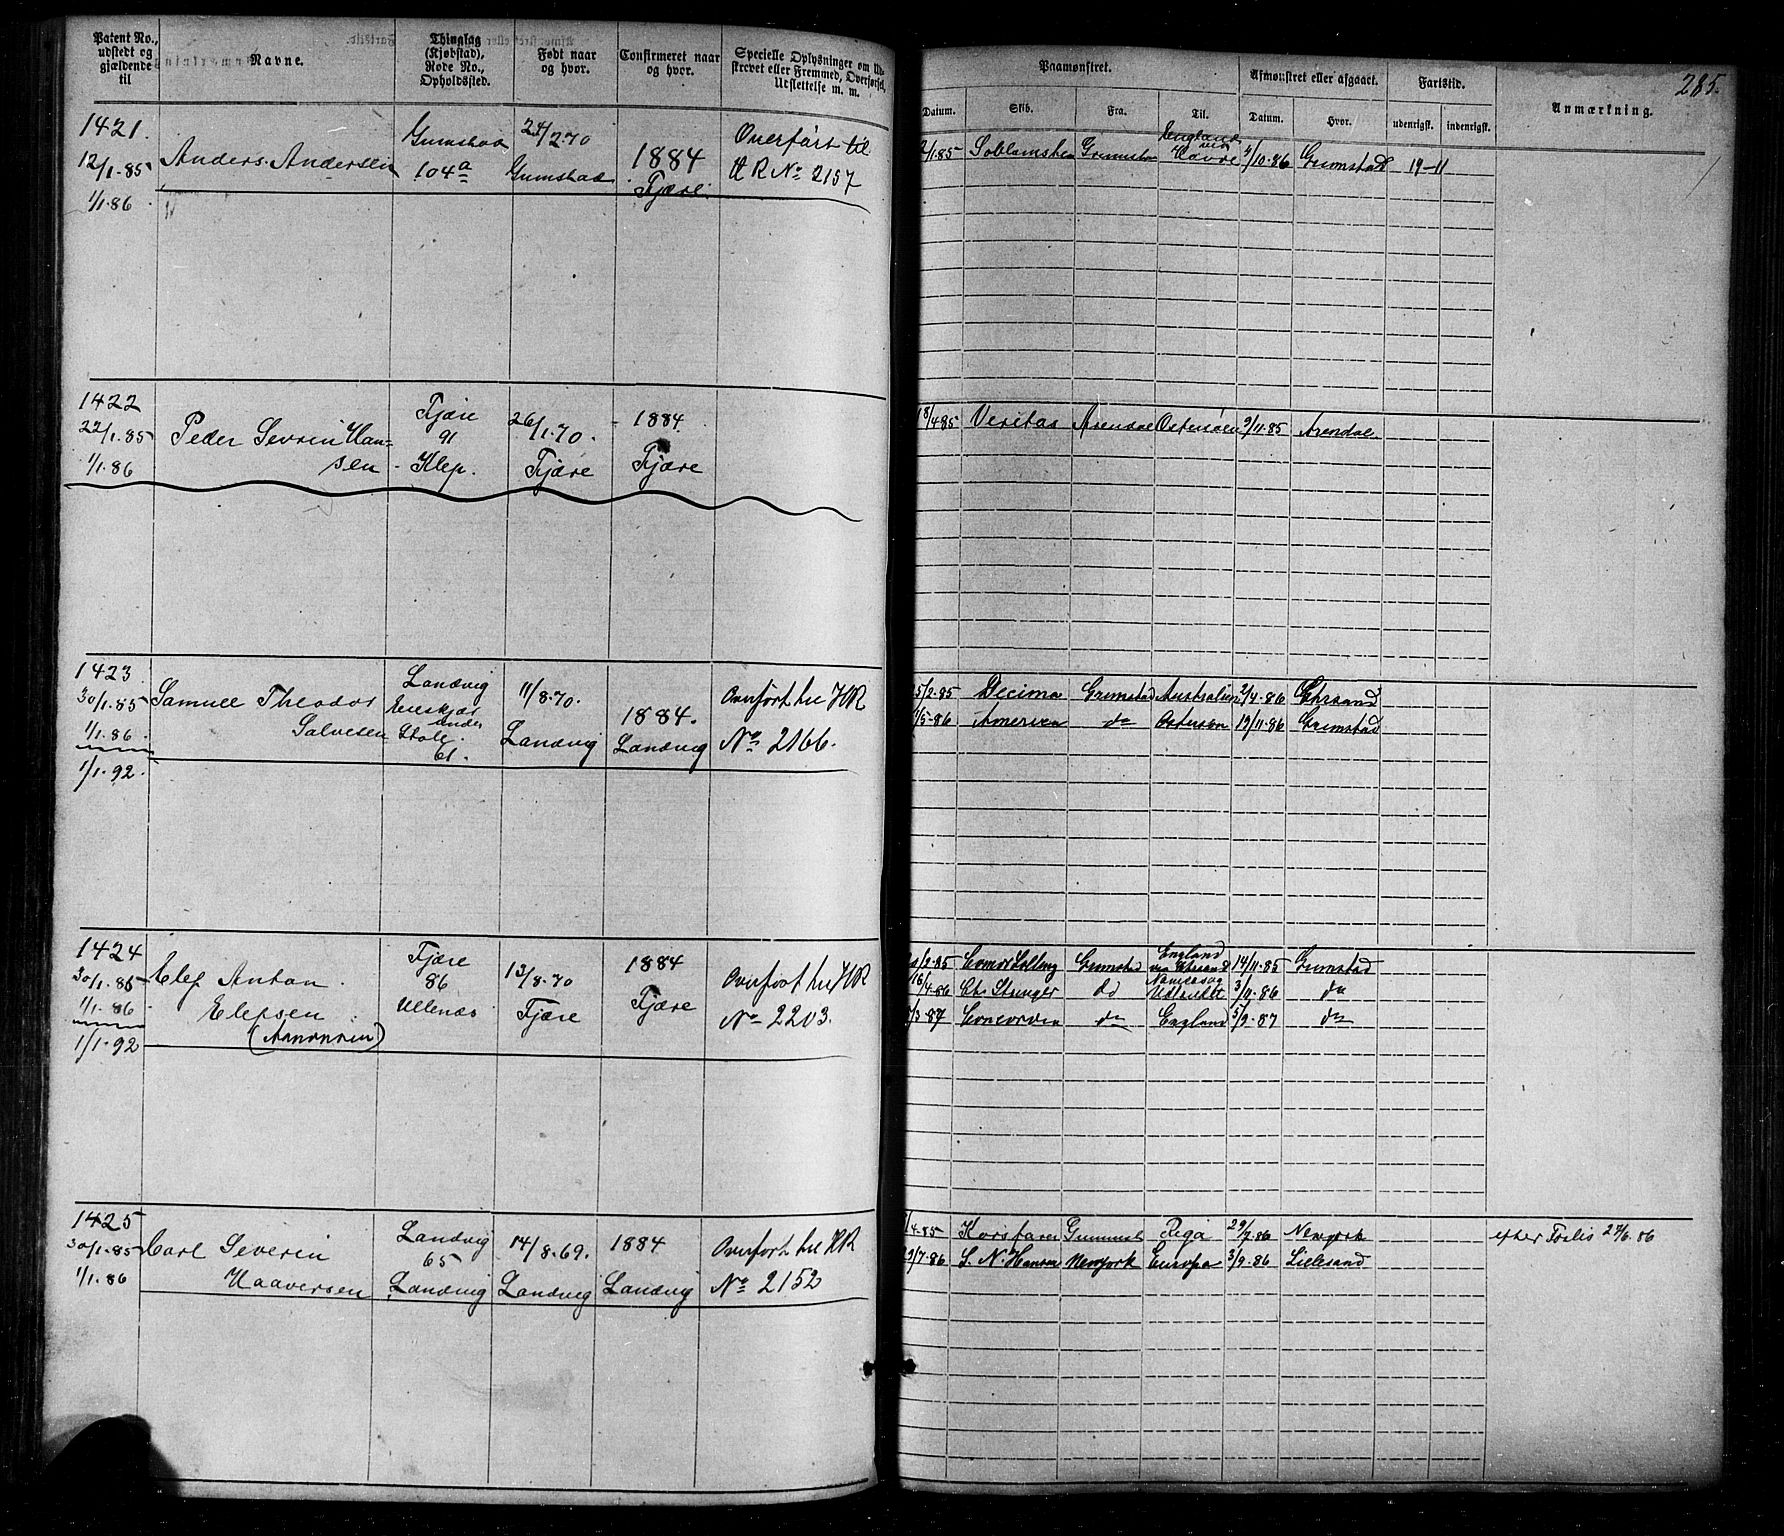 Patent No., udstedt og gjældende til
Navne.
Thinglag (Kjøbstad), Rode No., Opholdssted.
Født naar og hvor.
Confirmeret naar og hvor.
Specielle Oplysninger om Ud-
skrevet eller Fremmed, Overførsel,
Udslettelse m. m.
Paamønstret.
Datum.
Skib.
Fra.
Til.
Afmønstret eller afgaaet.
Datum.
Hvor.
Fartstid.
udenrigst.
indenrigst.
Anmærkning.
285.
1421.
12/1.85
1/1.86
Anders. Andersen
Grimstad
104a
24/2.70
Grimstad
1884
Fjære.
Overført til
HR No 2157
/1.85 Grimstad England via Havre /10.86 Grimstad 19-11
1422
22/1.85
1/1.86
Peder Severin Han-
sen
Fjære
91
Klep.
26/1.70.
Fjære
1884.
Fjære
18/4 85 Veritas Arendal Østersøen 9/11.85 Arendal
1423.
30/1.85
1/1.86.
1/1.92.
Samuel Theodor
Salvesen
Landvig
under
Stole.
61.
11/8.70.
Landvig
1884.
Landvig
Overført til HR
No 2166.
5/2.85 Decima Grimstad Australien 2/4.86 Chrsand
/5.86 America do Østersøen 19/11.86 Grimstad
1424
30/1.85
1/1.86
1/1.92
Elef Anton
Elefsen
Fjære
86
Vessøen
13/8.70
Fjære
1884
Fjære
Overført til HR
No 2203.
/2.85 Grimstad England via Chrsand 14/11.85 Grimstad
16/4.86 do 3/11.86 do
/3.87 Concordia do England 5/9.87 do
1425
30/1.85
1/1.86
Carl Severin
Haaversen
Landvig
65
Landvig
14/8.69.
Landvig
1884
Landvig
Overført til HR
No 2152
/4.85 Korsfarer Grimstad Riga 29/7.86 Newyork efter Forlis 27/6.86
29/7.86 S. N. Hansen Newyork Europa 3/9.86 Lillesand